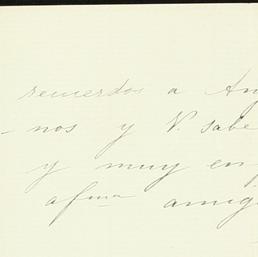 recuerdos a An
- nos y V. sabe
y muy en
afma amig